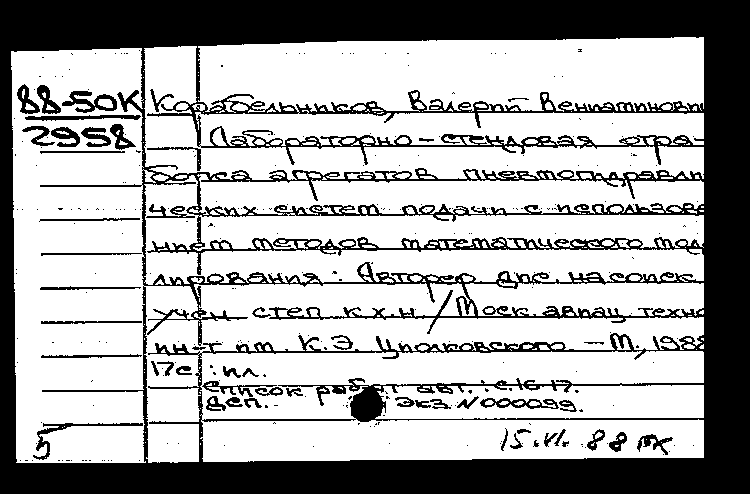 88-50К
2958
Корабельников, Валерий Вениаминови
Лабораторно-стендовая отра-
ботка агрегатов пневмогидравли
ческих систем подачи с использова
нием методов математического мод
лирования: Автореф дис. на соиск.
учен степ к.х.н. / Моск. авиац. техно
ин-т им. К.Э. Циолковского. - М., 1988
17с. : ил.
Список работ авт.: с.16-17.
Деп. Экз N000099.
5
15.VI. 88